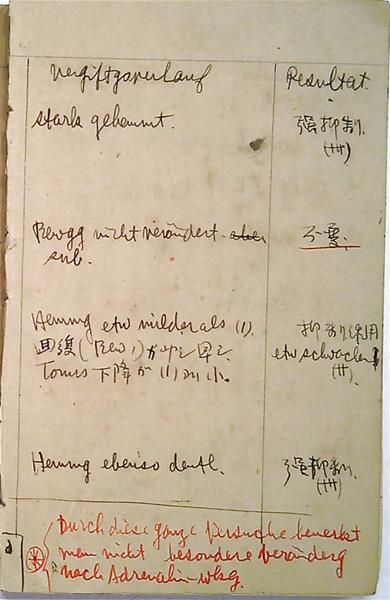 Vergiftgsverlauf
Resultat.
stark gehemmt.
强抑制.
(卅)
Bewgg nicht verändert. aber
sub.
不変.
Hemmg etw milder als (1).
回復(Bew,)がやゝ早シ
Tonus 下降が (1) ヨリ小。
抑制作用
etw schwächer
(卅).
Hemmg ebenso deutl.
强抑制.
(卅)
Durch diese ganze Versuche bemerkt
man nicht besondere Veränderg
nach Adrenalin-wkg.